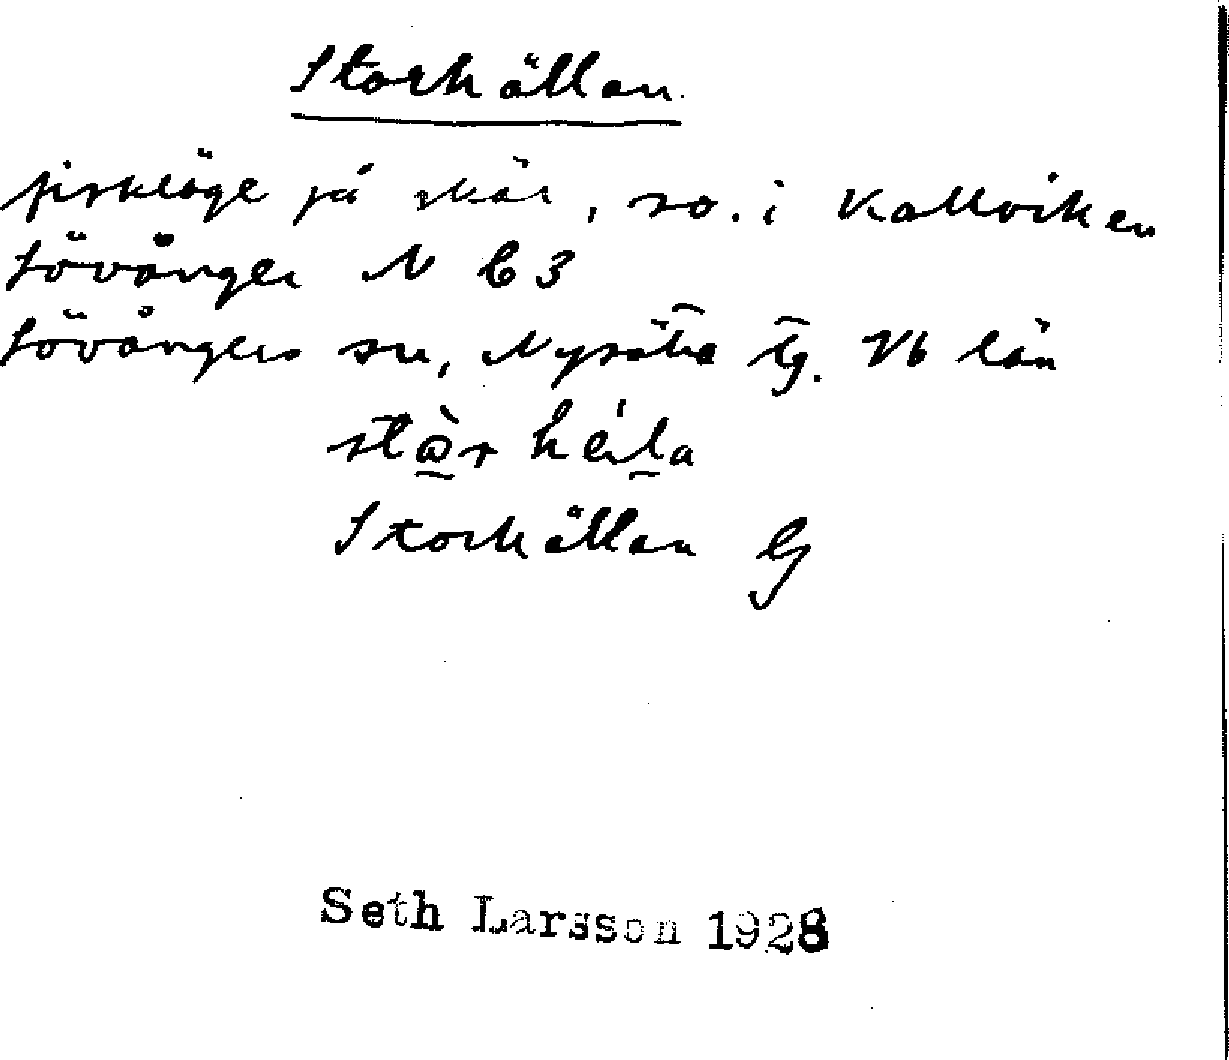 Storhällan
fiskläge på skär, so. i Kallviken
Lövånger N C3
Lövångers sn, Nysätra tg. Vb län
Storhällan G
Seth Larsson 1928